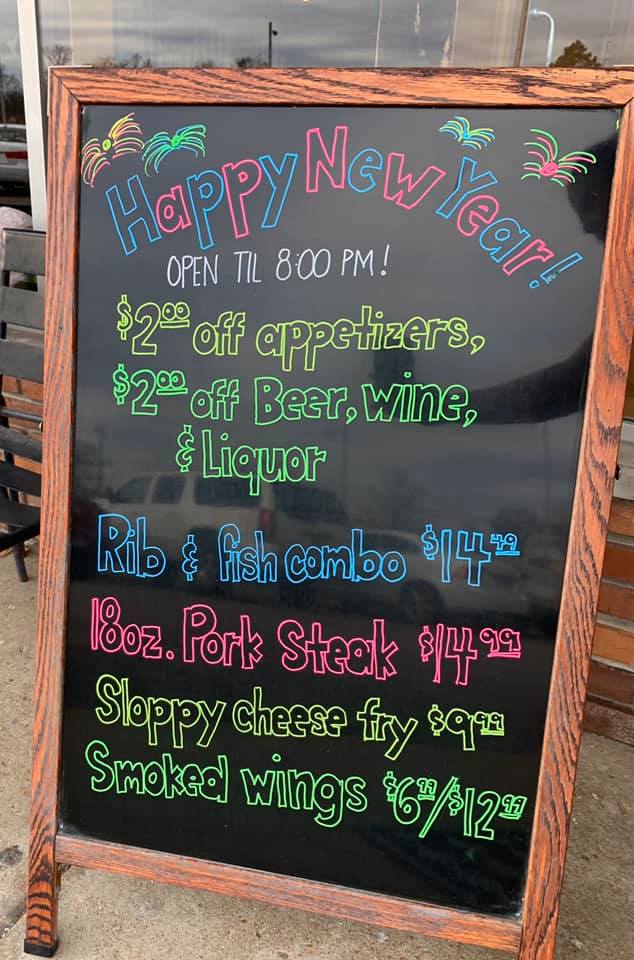 Happy New Year!
OPEN TIL 8:00 PM!
$2.00 off appetizers,
$2.00 off Beer, wine,
& Liquor
Rib & fish combo $14.49
18oz. Pork Steak $14.99
Sloppy cheese fry $9.99
Smoked wings $6.99/$12.99